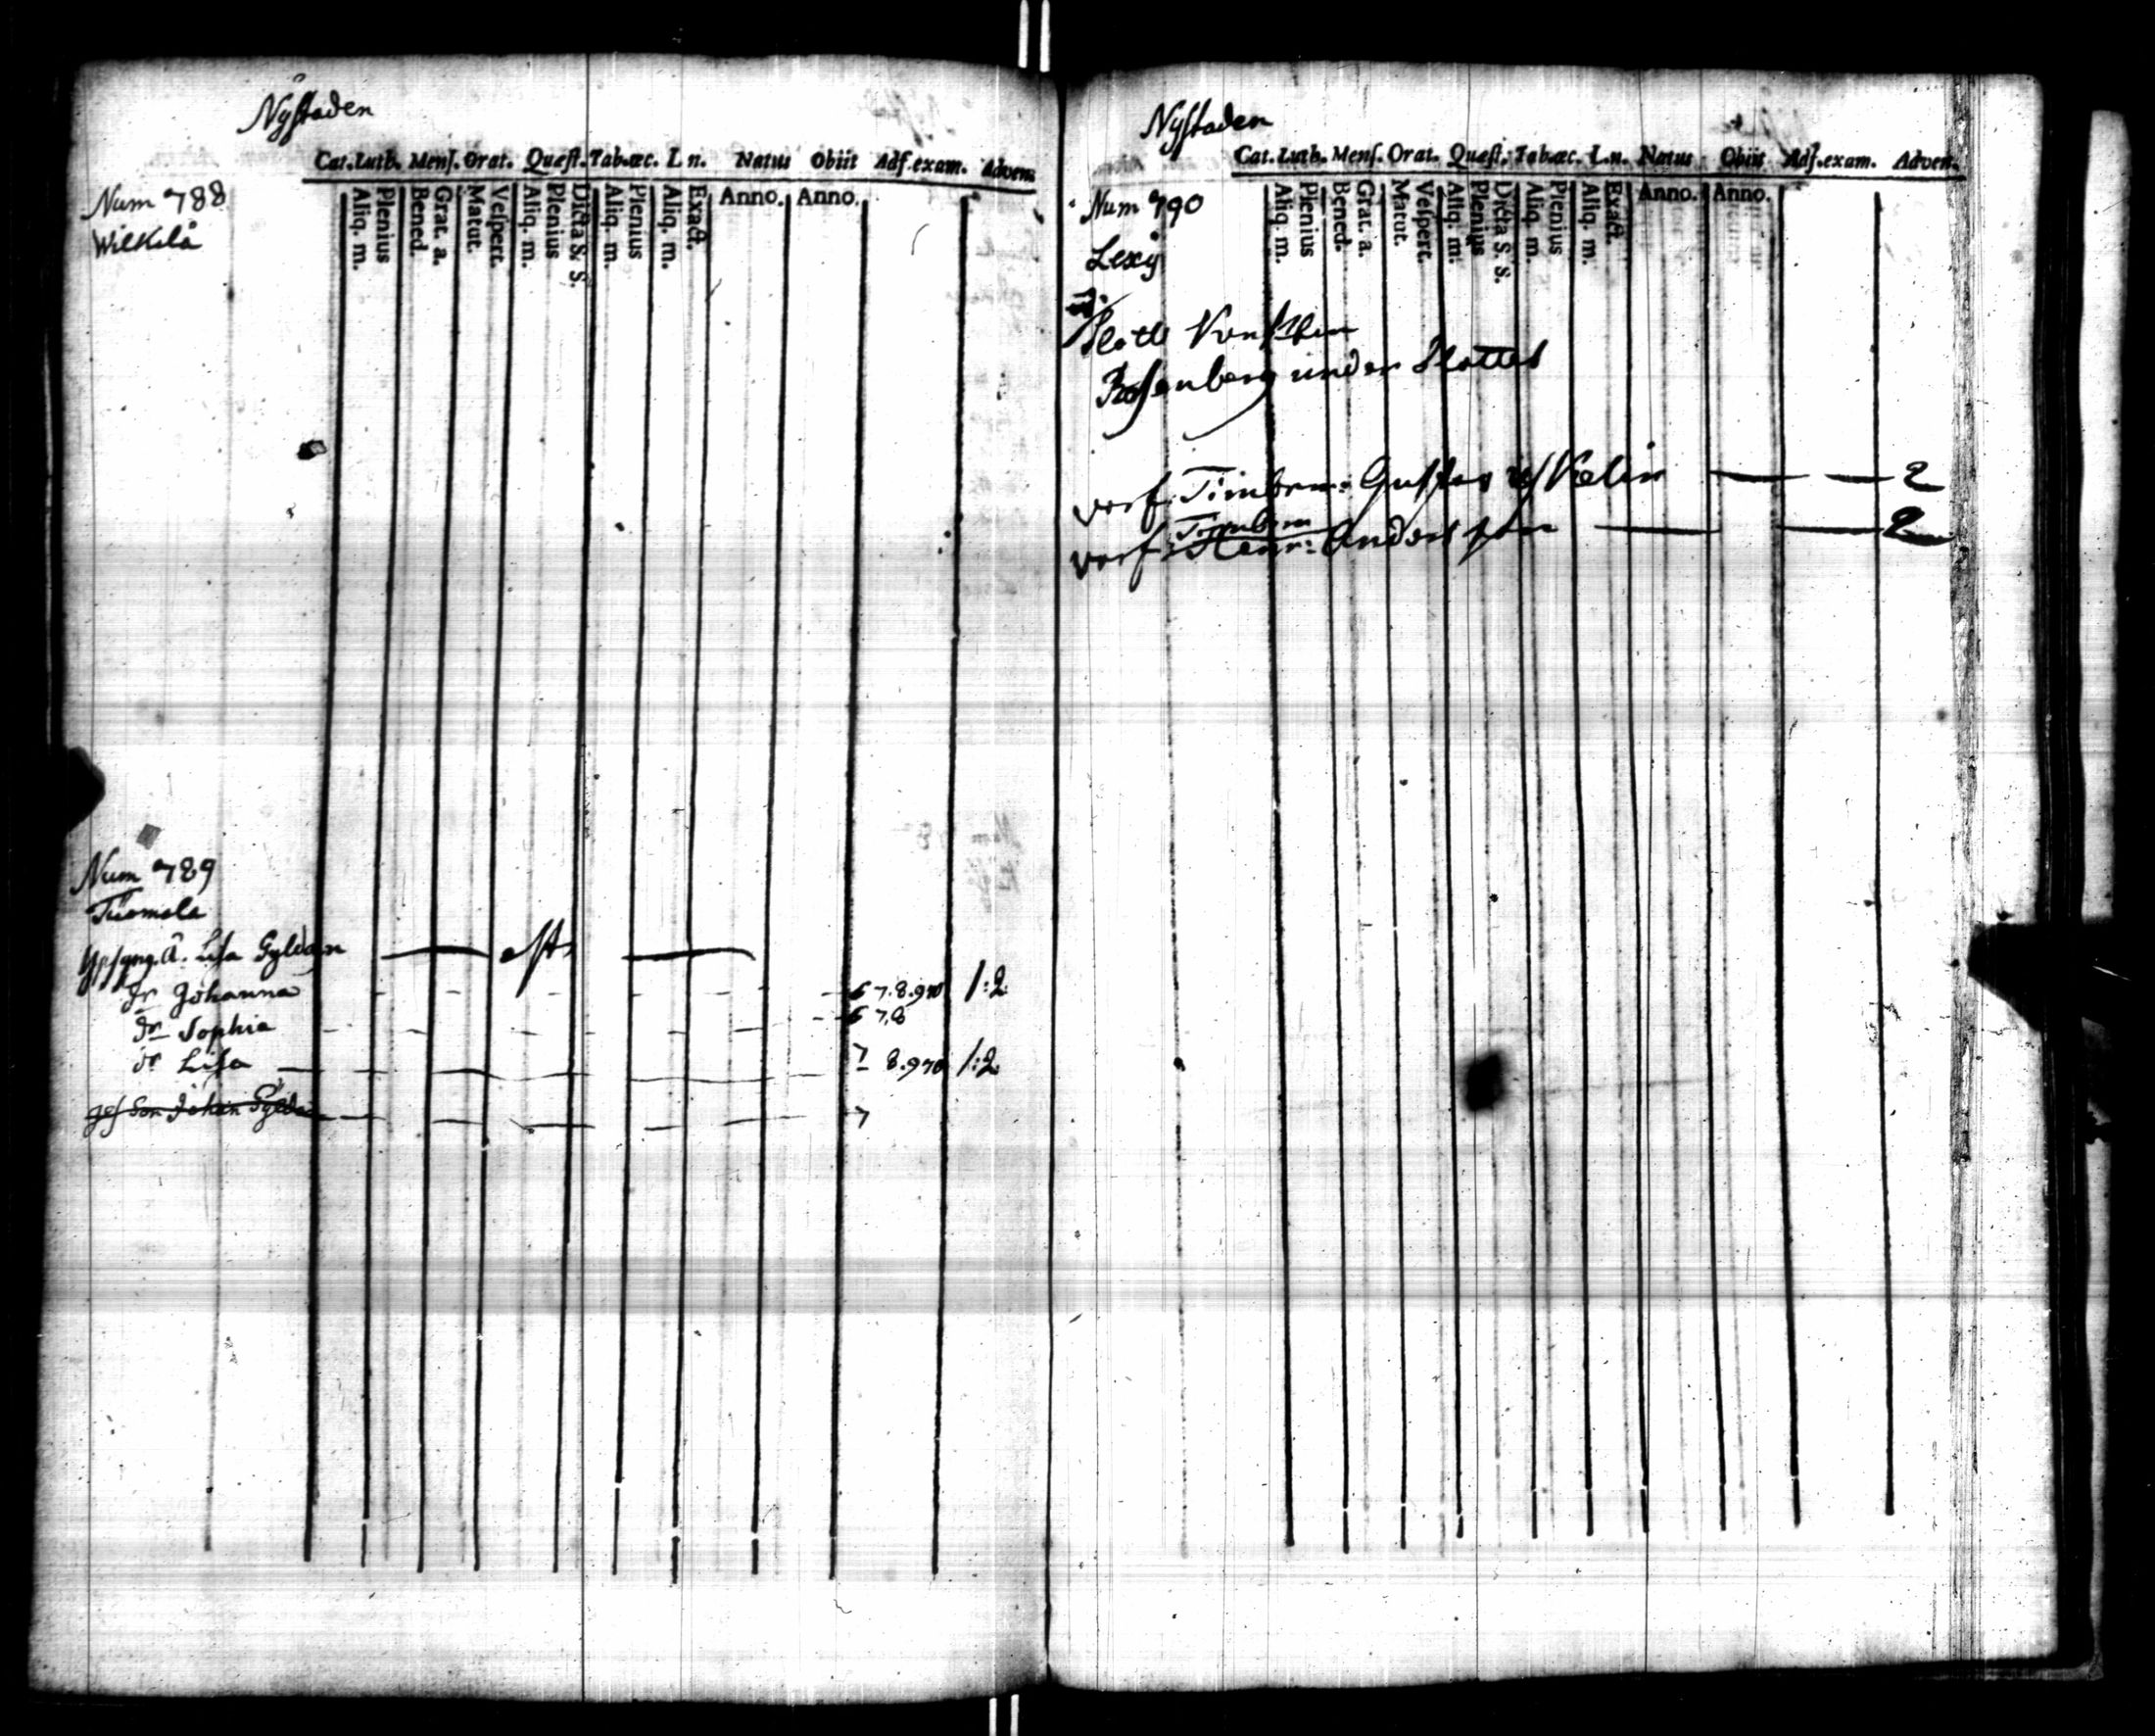 Nystaden
Cat. Luth. Mens. Orat. Quæst. Tab. œc. L n. Natus Obiit Adf. exam. Adven.
Aliq. m. Plenius Bened. Grat. a. Matut. Vespert. Aliq. m. Plenius Dicta S. S. Aliq. m. Plenius Aliq. m. Exact. Anno. Anno.
Num 788
Wilkelå
Num 789
Tuomola
Lisa Gyldén
Dr Johanna 6 7.8.970 1:2
Dr Sophia 6 7,8
dr Lisa 7 8.970 1:2
Son Johan Gyldén 7
Nystaden
Cat. Luth. Mens. Orat. Quæst. Tab. œc. L. n. Natus Obiit Adf. exam. Adven.
Aliq. m. Plenius Bened. Grat. a. Matut. Vespert. Aliq. m. Plenius Dicta S. S. Aliq. m. Plenius Aliq. m. Exact. Anno. Anno.
Num 790
Lexy
Rosenberg under Slottet
Timberm: Gustav 2
Timberm
Henr: Andersson 2